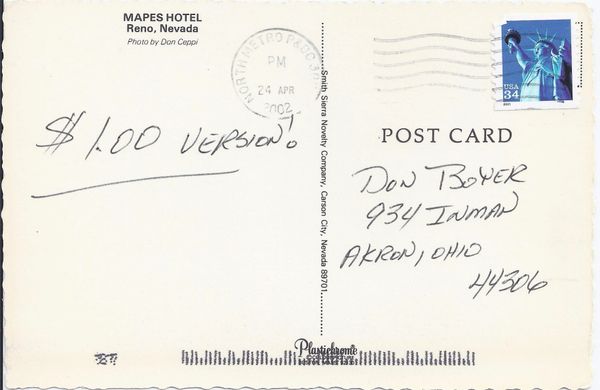 MAPES HOTEL
Reno, Nevada
Photo by Don Ceppi
$1.00 VERSION!
Smith Sierra Novelty Company, Carson City, Nevada 89701
NORTH METRO P&DC
PM
24 APR
2002
USA
34
POST CARD
DON BOYER
934 INMAN
AKRON, OHIO
44306
Plastichrome